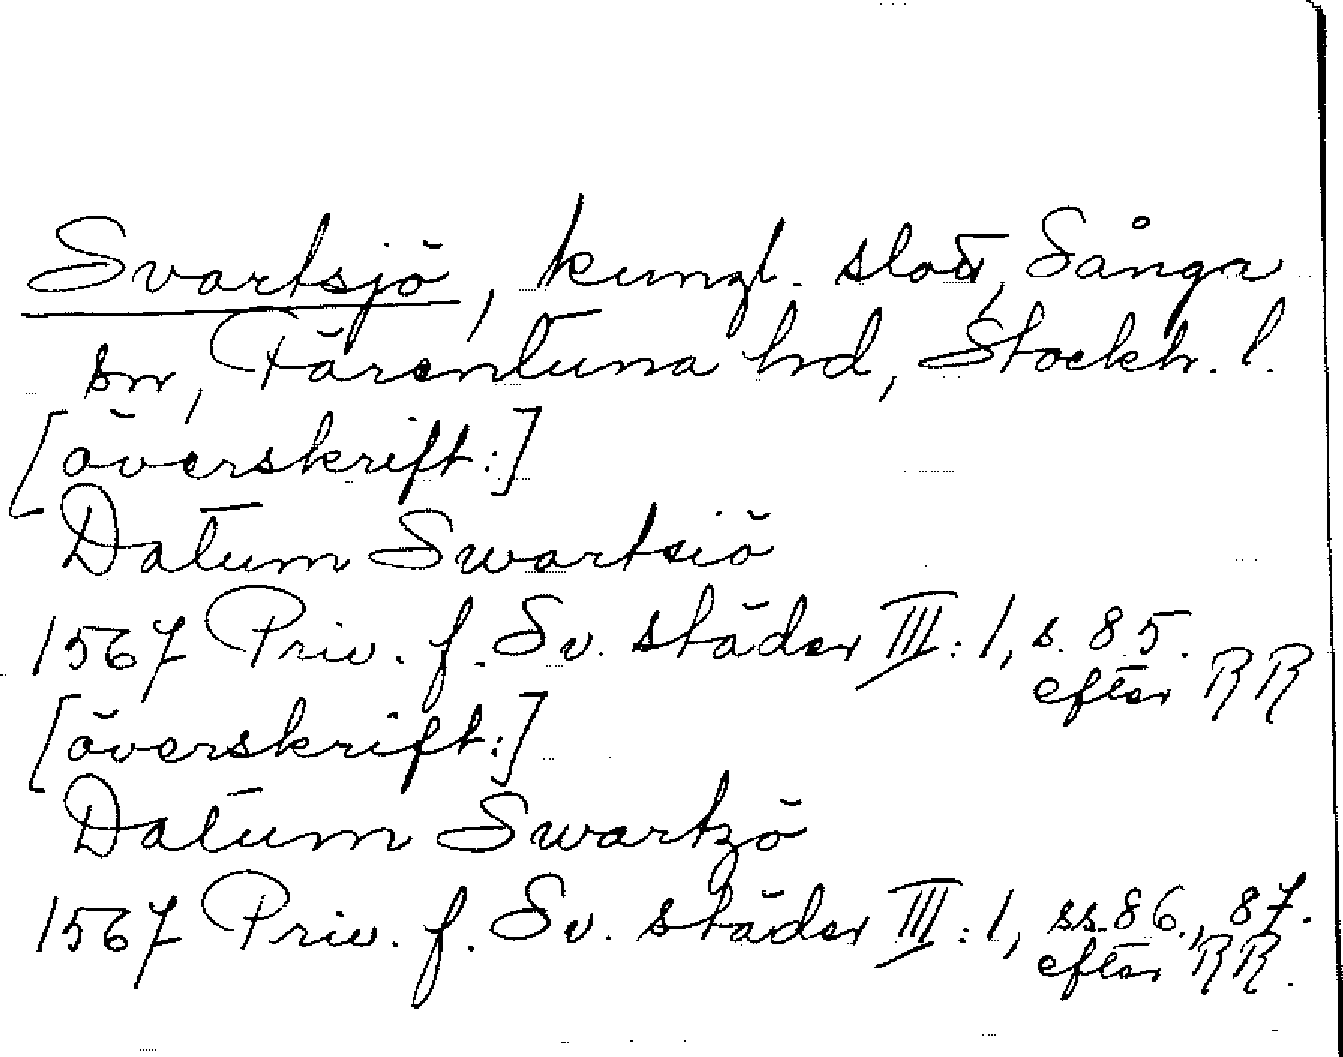 Svartsjö, kungl. slott, Sånga
sn, Färentuna hd, Stockh. l.
[överskrift:]
Datum Swartsiö
1567 Priv. f. Sv. städer III:1, s. 85.
efter RR
[överskrift:]
Datum Swartzö
1567 Priv. f. Sv. städer III:1, ss. 86., 87.
efter RR.